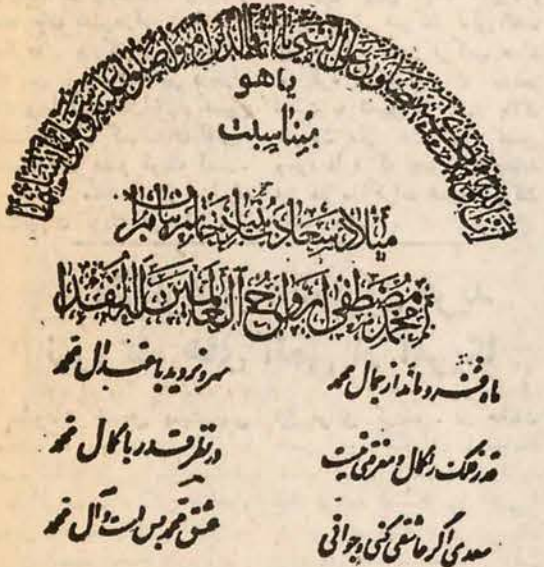 إن الله وملائكته يصلون على النبي يا أيها الذين آمنوا صلوا عليه وسلموا تسليما
یاهو
بمناسبت
میلاد سعادت بنیاد خاتم پیامبران
محمد مصطفی ارواح العالمین له الفداء
ماه فرو ماند از جمال محمد
سرو نروید باعتدال محمد
قدر فلک را کمال و منزلتی نیست
در نظر قدر با کمال محمد
سعدی اگر عاشقی کنی و جوانی
عشق محمد بس است و آل محمد